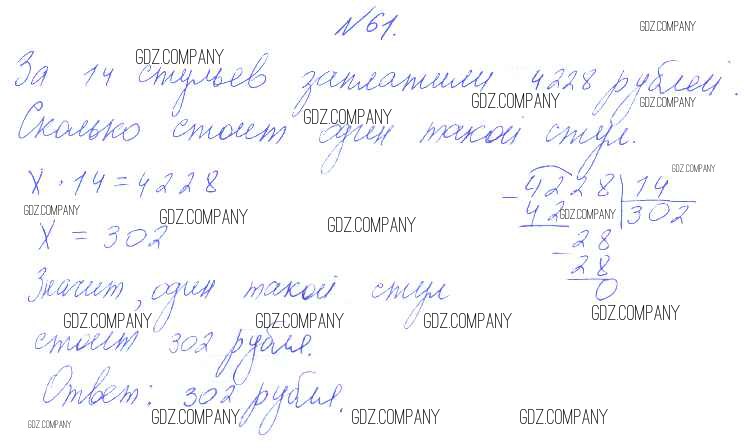 №61.
GDZ.COMPANY
GDZ.COMPANY
За 14 стульев заплатили 4228 рублей.
GDZ.COMPANY GDZ.COMPANY GDZ.COMPANY
Сколько стоит один такой стул.
GDZ.COMPANY
x · 14 = 4228
- 4228 | 14
GDZ.COMPANY GDZ.COMPANY GDZ.COMPANY GDZ.COMPANY
42 302
x = 302
- 28
28
Значит, один такой стул
0
GDZ.COMPANY GDZ.COMPANY GDZ.COMPANY GDZ.COMPANY
стоит 302 рубля.
Ответ: 302 рубля.
GDZ.COMPANY GDZ.COMPANY GDZ.COMPANY GDZ.COMPANY GDZ.COMPANY